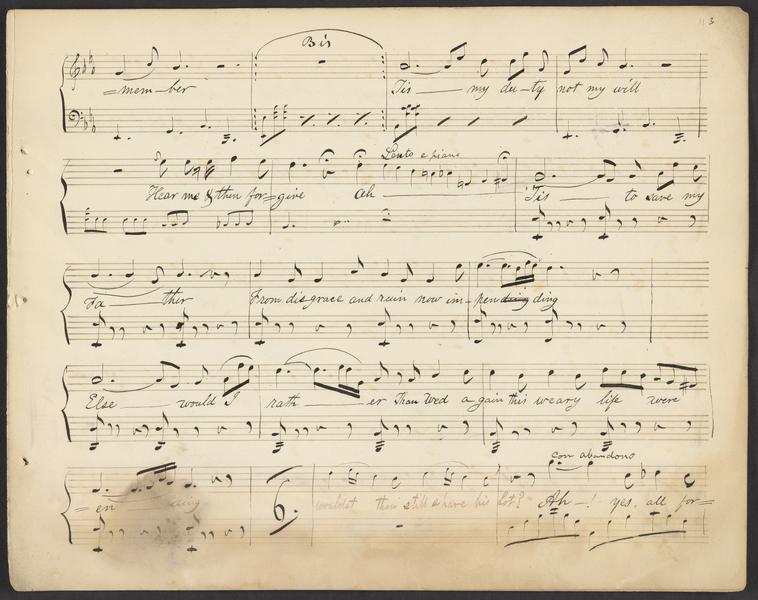 3
Bis
=mem-ber Tis — my du-ty not my will
Lento e piano
Hear me & then for=give ah — Tis — to save my
Fa — ther From disgrace and ruin now im-pending ding
Else — would I rath — er Than Wed a gain this weary life were
con abandono
=en — ding 6. wouldst thou still share his lot? Ah -! yes, all for=